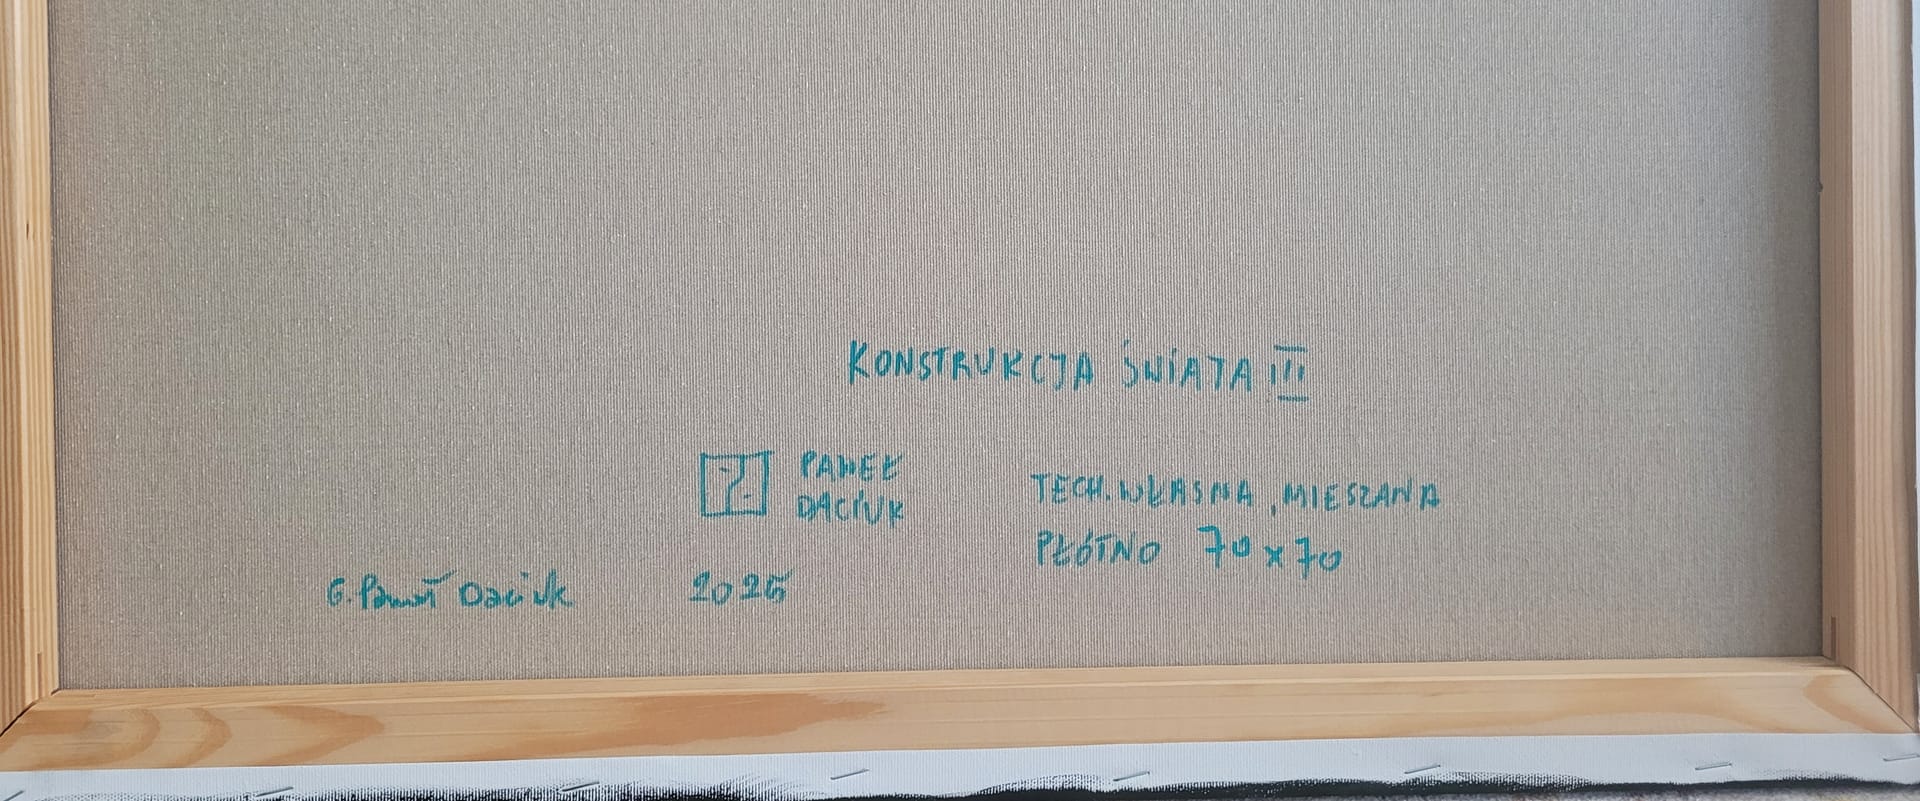 KONSTRUKCJA ŚWIATA III
PAWEŁ
DACIUK
TECH. WŁASNA, MIESZANA
PŁÓTNO 70 x 70
G. Paweł Daciuk 2025